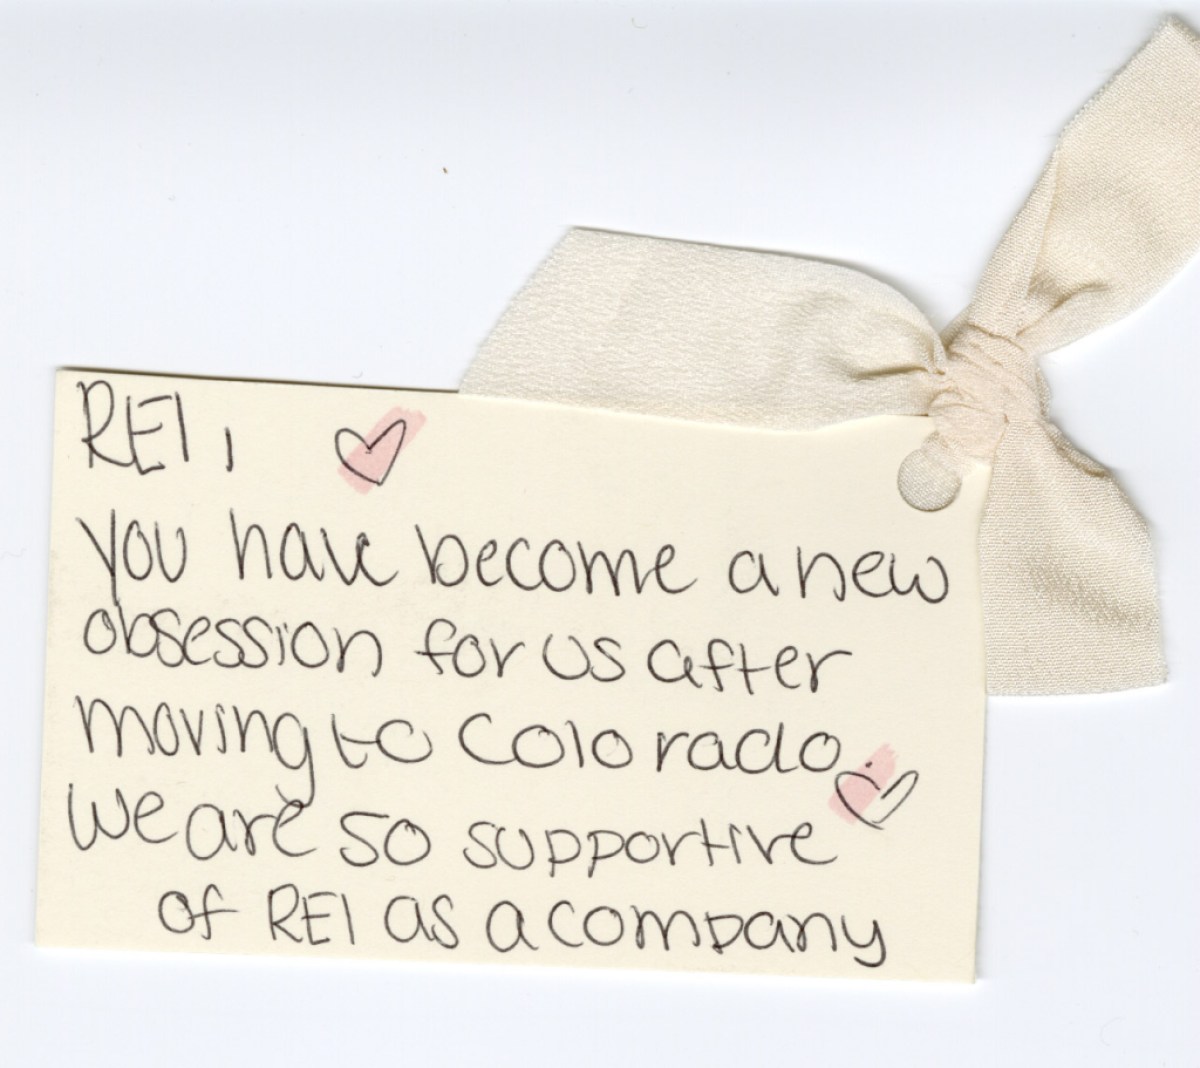 REI,
you have become a new
obsession for us after
moving to Colorado.
We are so supportive
of REI as a company